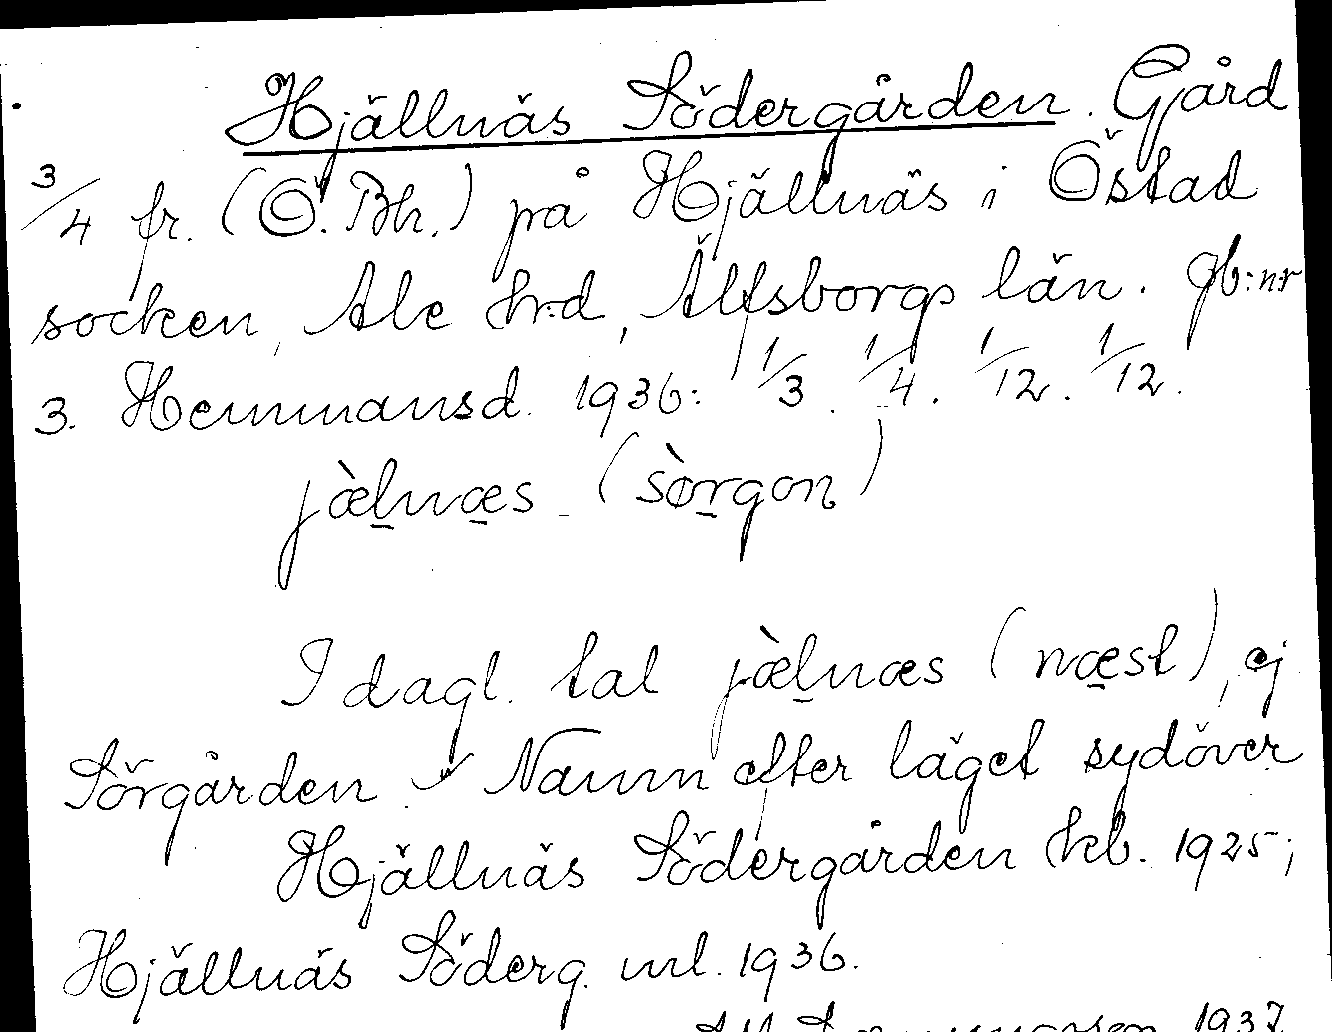 Hjällnäs Södergården. Gård
3/4 fr. (Ö. Bh.) på Hjällnäs i Östad
socken, Ale hrd, Älfsborgs län. Jb:nr
3. Hemmansd. 1936: 1/3. 1/4. 1/12. 1/12.
jæ̀l̠næ̠s (sòr̠gon)
I dagl. tal jæ̀l̠næs (næ̠st), ej
Sörgården. Namn efter läget sydöver
Hjällnäs Södergården hkb. 1925;
Hjällnäs Söderg. ml. 1936.
1937